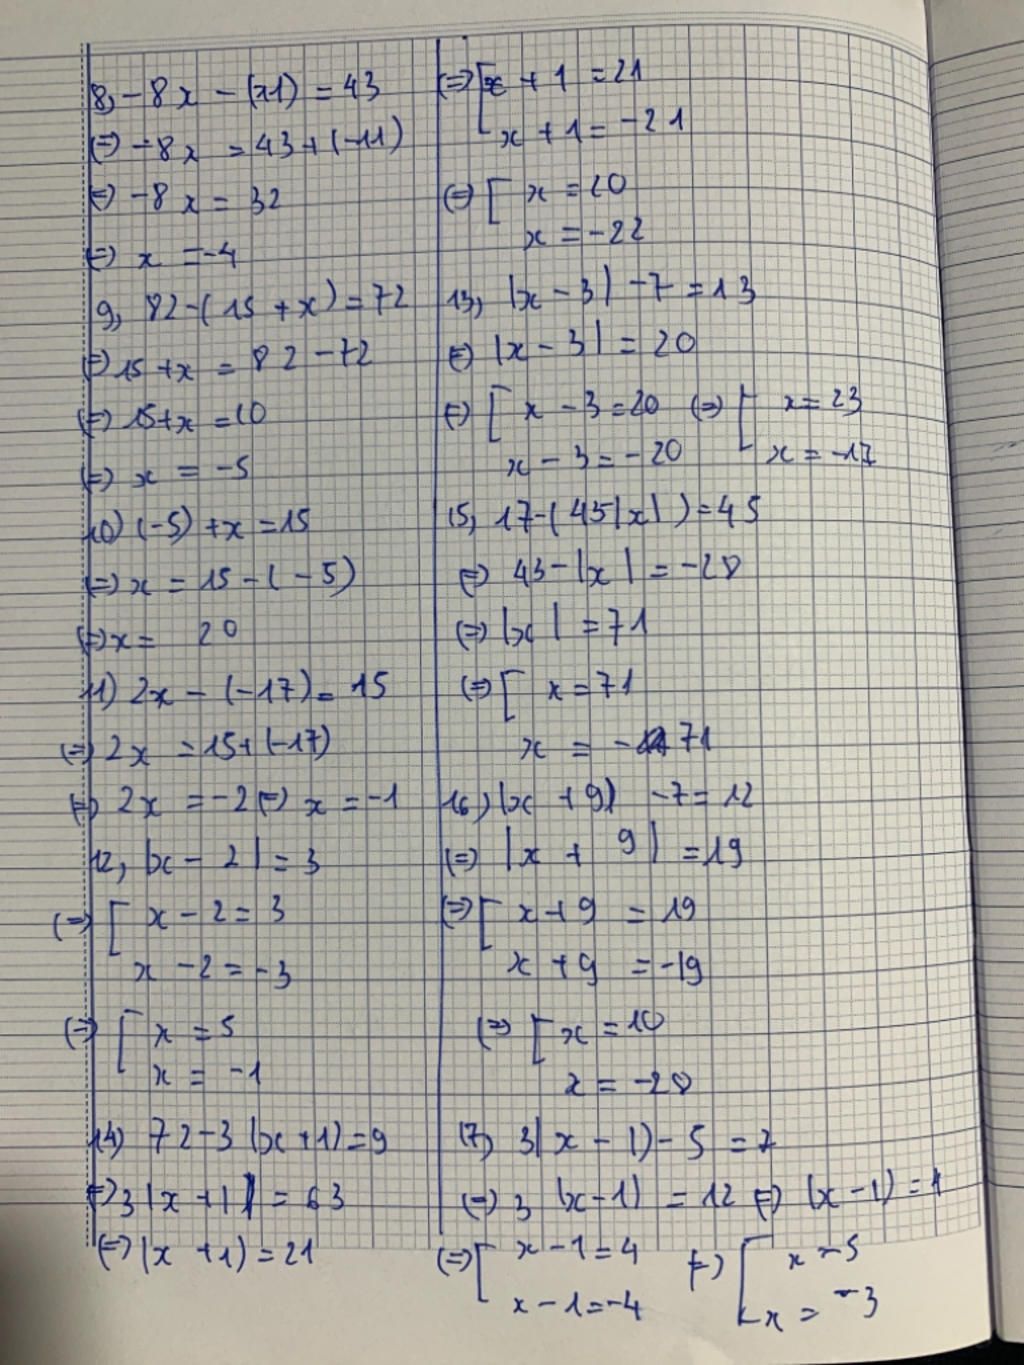 8, -8x - (-11) = 43
(=) -8x = 43 + (-11)
(=) -8x = 32
(=) x = -4
9, 82 - (15 + x) = 72
(=) 15 + x = 82 - 72
(=) 15 + x = 10
(=) x = -5
10) (-5) + x = 15
(=) x = 15 - (-5)
(=) x = 20
11) 2x - (-17) = 15
(=) 2x = 15 + (-17)
(=) 2x = -2 (=) x = -1
12, |x - 2| = 3
(=) [ x - 2 = 3
x - 2 = -3
(=) [ x = 5
x = -1
14) 72 - 3 |x + 1| = 9
(=) 3 |x + 1| = 63
(=) |x + 1) = 21
(=) [ x + 1 = 21
x + 1 = -21
(=) [ x = 20
x = -22
13, |x - 3| - 7 = 13
(=) |x - 3| = 20
(=) [ x - 3 = 20 (=) [ x = 23
x - 3 = -20 x = -17
15, 17 - (45|x|) = 45
(=) 43 - |x| = -28
(=) |x| = 71
(=) [ x = 71
x = -71
16) |x + 9) - 7 = 12
(=) |x + 9| = 19
(=) [ x + 9 = 19
x + 9 = -19
(=) [ x = 10
x = -28
17, 3|x - 1) - 5 = 7
(=) 3 |x - 1) = 12 (=) |x - 1) = 4
(=) [ x - 1 = 4 (=) [ x = 5
x - 1 = -4 x = -3